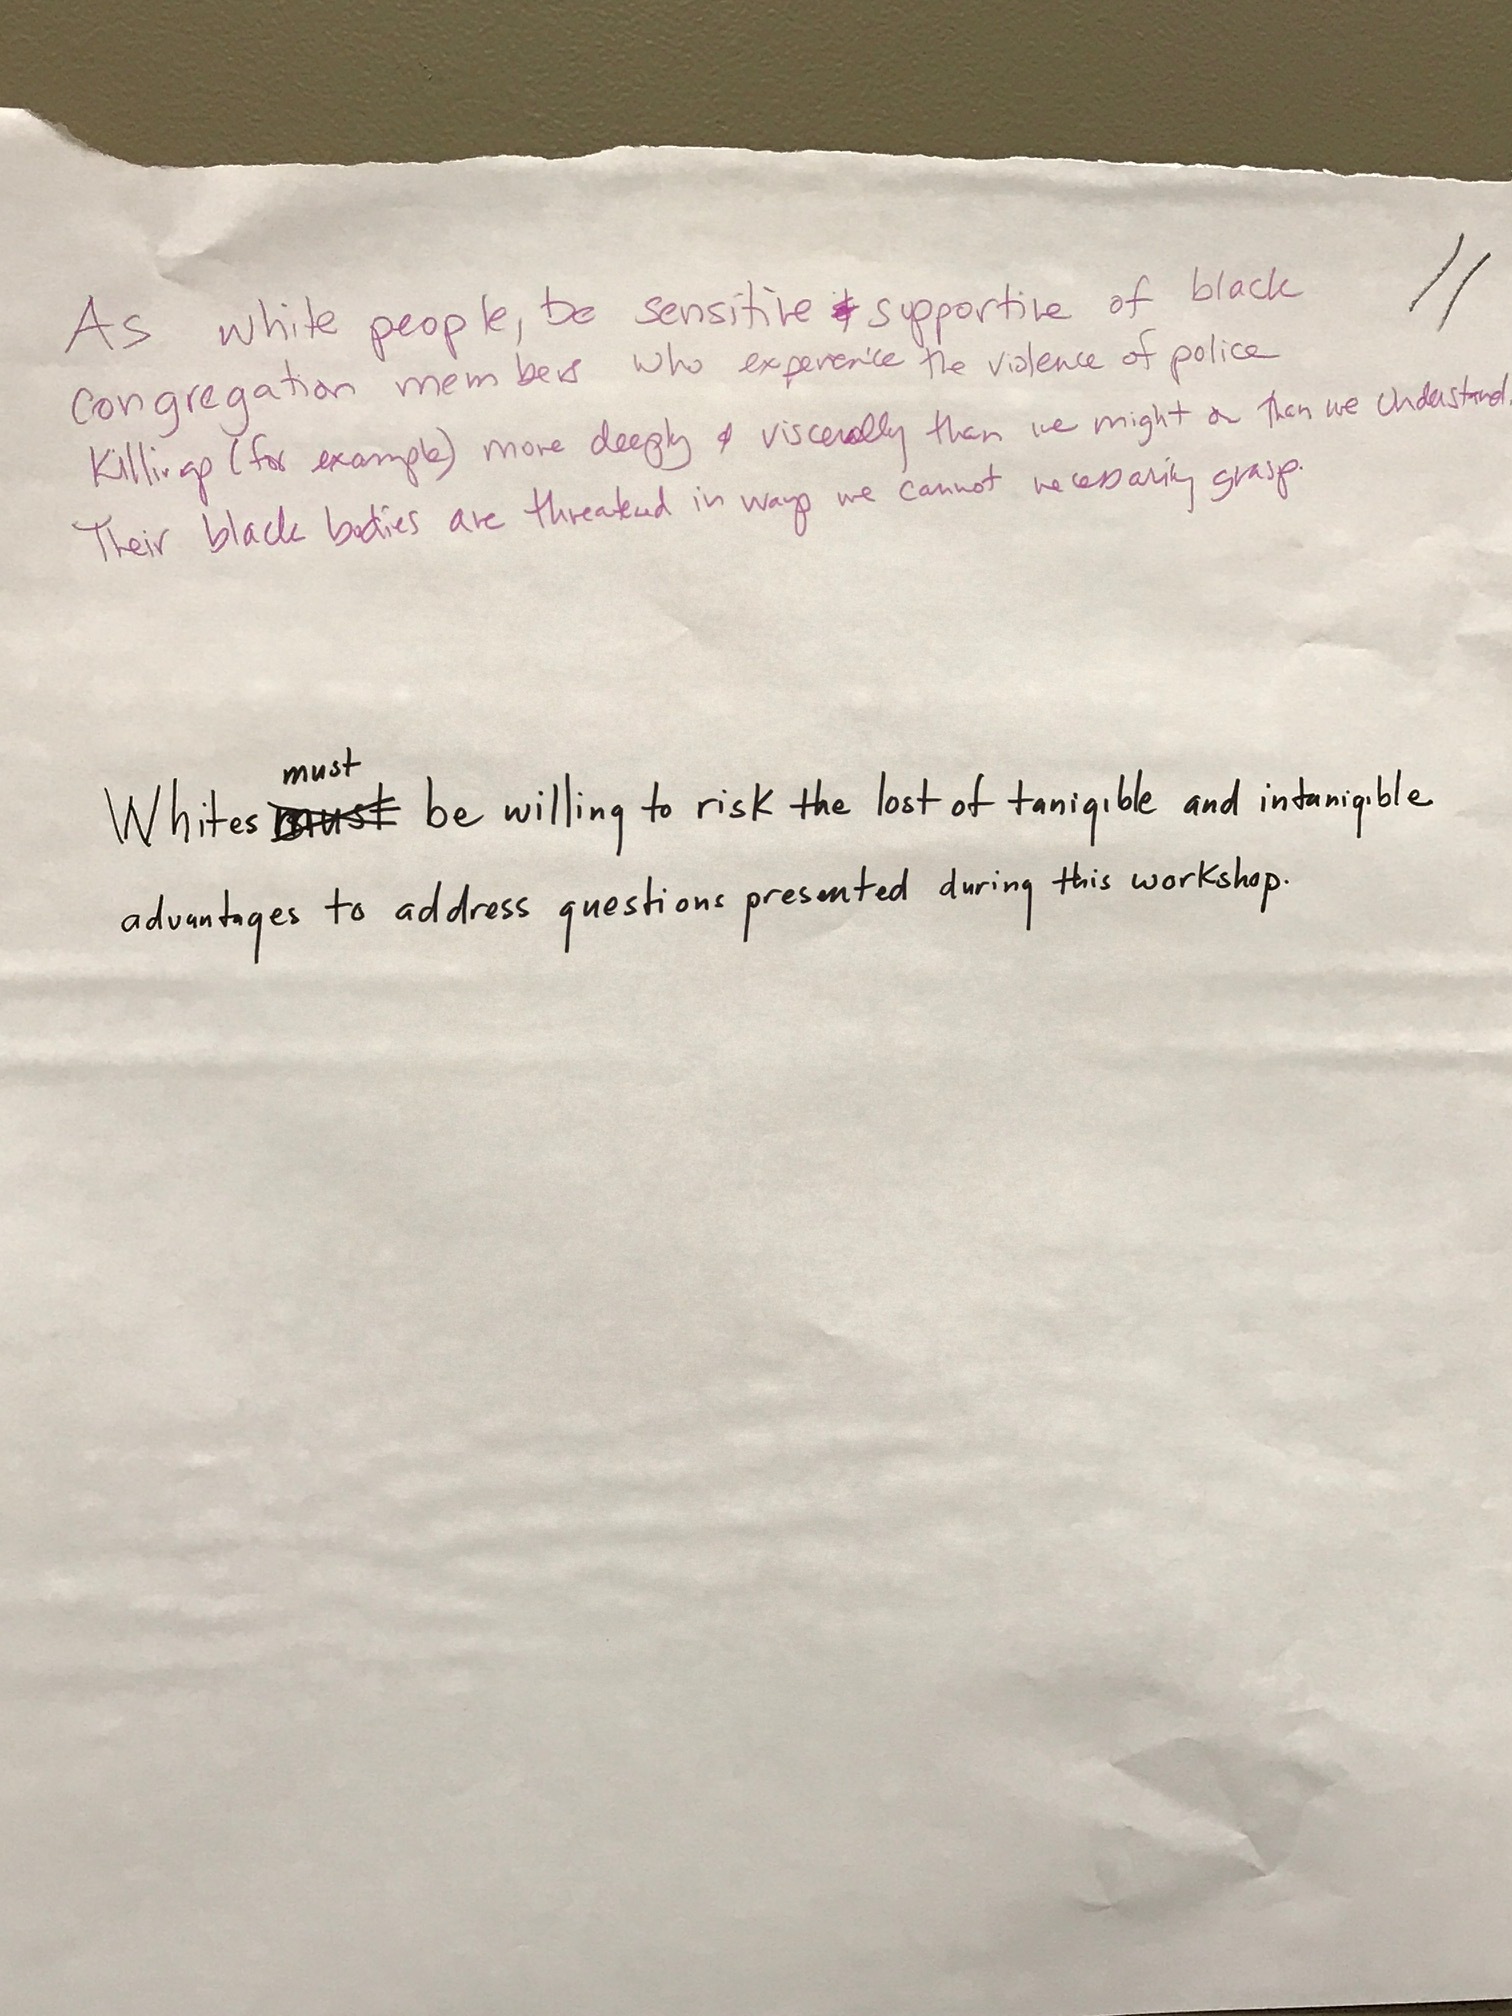 As white people, be sensitive & supportive of black //
congregation members who experience the violence of police
killings (for example) more deeply & viscerally than we might or than we understand.
Their black bodies are threatend in ways we cannot necessarily grasp.
must
Whites must be willing to risk the lost of tanigible and intanigible
advantages to address questions presented during this workshop.